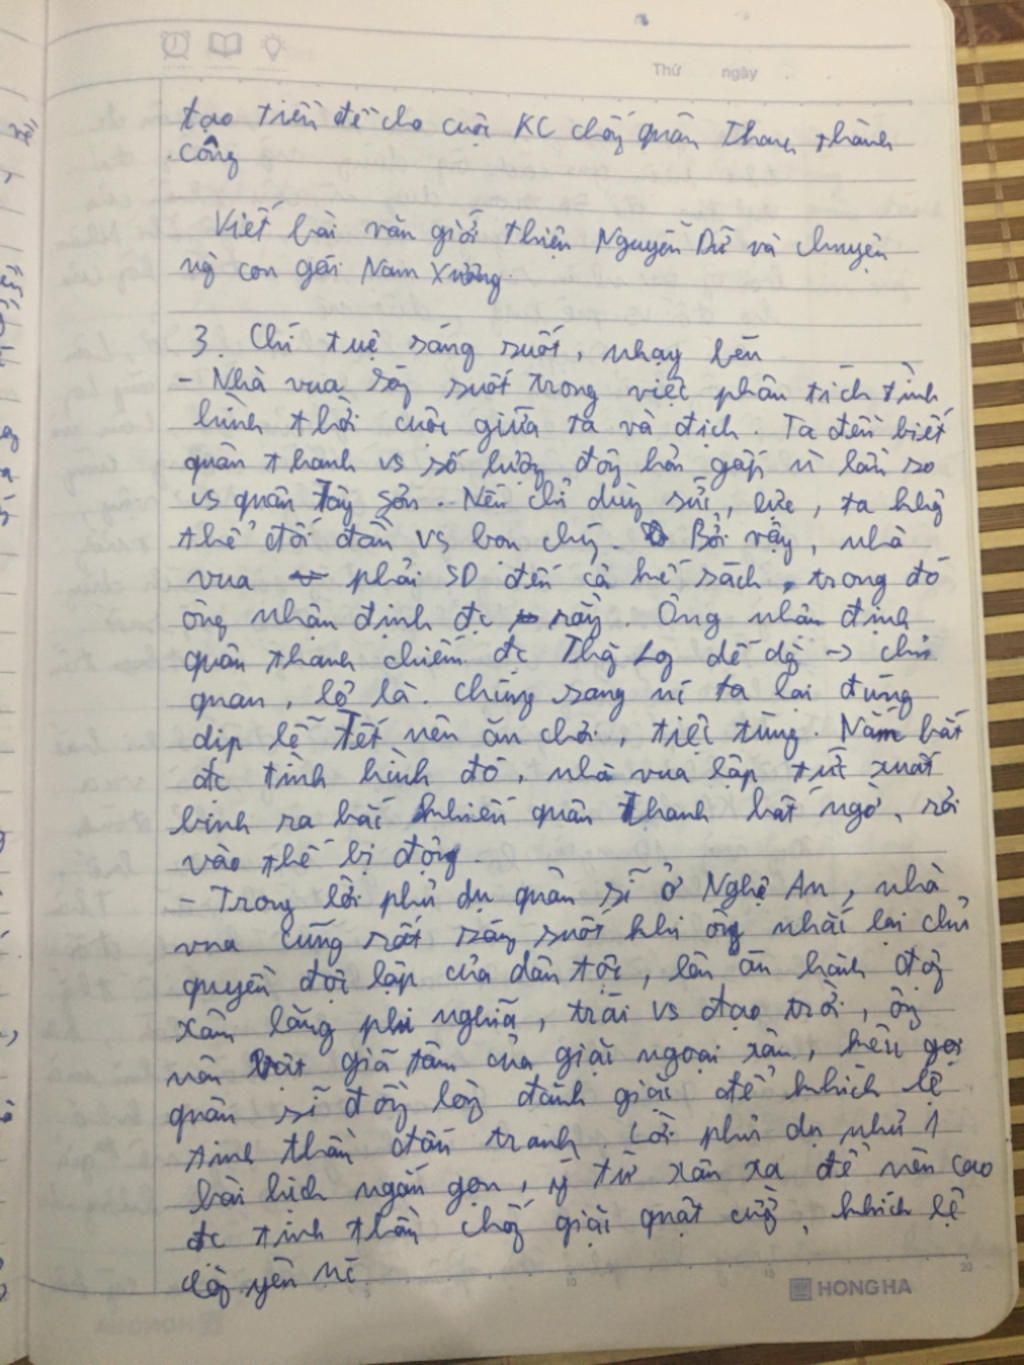 Thứ ngày
tạo tiền đề cho cuộc KC chống quân Thanh thành
công
Viết bài văn giới thiệu Nguyễn Dữ và chuyện
ng con gái Nam Xương.
3. Chí tuệ sáng suốt, nhạy bén
- Nhà vua sáng suốt trong việc phân tích tình
hình thời cuộc giữa ta và địch. Ta đều biết
quân thanh vs số lượng đông hơn gấp n lần so
vs quân Tây Sơn. Nếu chỉ dùng sức, lực, ta khg
thể đối đầu vs bọn chúng. Bởi vậy, nhà
vua phải SD đến cả kế sách, trong đó
ông nhận định đc rằng. Ông nhận định
quân thanh chiếm đc Thg Lg dễ dàng -> chủ
quan, lơ là. Chúng sang nc ta lại đúng
dịp lễ Tết nên ăn chơi, tiệc tùng. Nắm bắt
đc tình hình đó, nhà vua lập tức xuất
binh ra bắc khiến quân Thanh bất ngờ, rơi
vào thế bị động.
- Trong lời phủ dụ quân sĩ ở Nghệ An, nhà
vua cũng rất sáng suốt khi ông nhắc lại chủ
quyền độc lập của dân tộc, lên án hành động
xâm lăng phi nghĩa, trái vs đạo trời, ông
nêu bật giã tâm của giặc ngoại xâm, kêu gọi
quân sĩ đồng lòng đánh giặc để khích lệ
tinh thần đấu tranh. Lời phủ dụ như 1
bài hịch ngắn gọn, ý tứ xâu xa để nêu cao
đc tinh thần chống giặc quật cường, khích lệ
lòng yêu nc
HONG HA